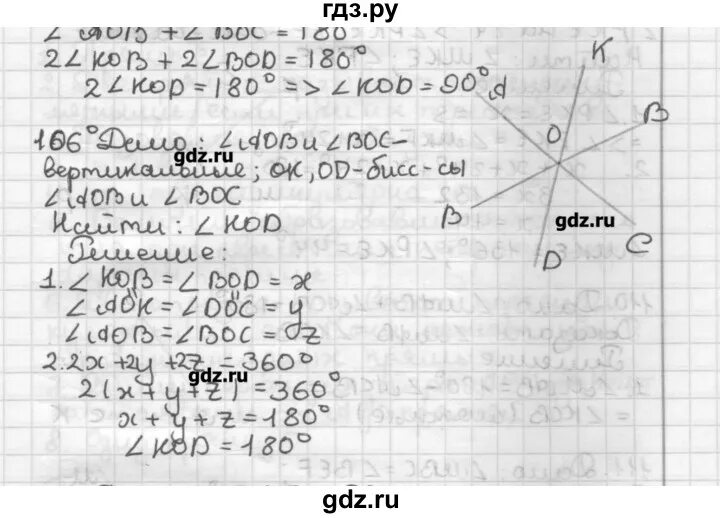 гдз.ру
∠AOB + ∠BOC = 180°
2∠KOB + 2∠BOD = 180°
2∠KOD = 180° => ∠KOD = 90°
106° Дано: ∠AOB и ∠BOC-
вертикальные; OK, OD-бисс-сы
∠AOB и ∠BOC
Найти: ∠KOD
Решение:
1. ∠KOB = ∠BOD = x
∠AOK = ∠DOC = y
∠AOB = ∠BOC = z
2. 2x + 2y + 2z = 360°
2(x + y + z) = 360°
x + y + z = 180°
∠KOD = 180°
K
A
B
O
B
C
D
gdz.ru
gdz.ru
gdz.ru
gdz.ru